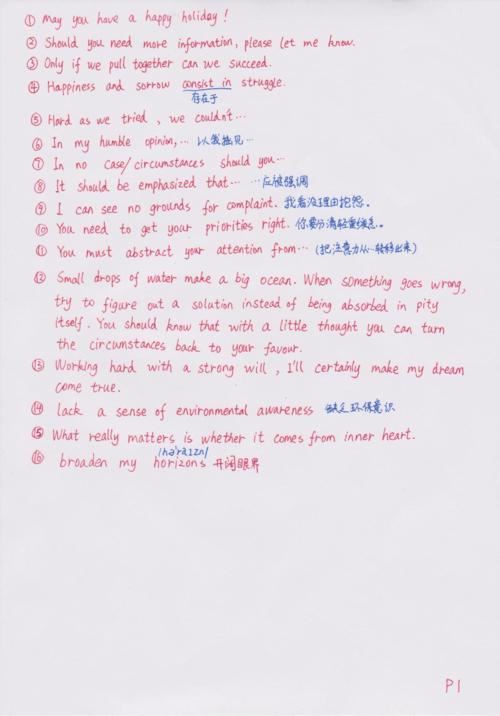 ① May you have a happy holiday!
② Should you need more information, please let me know.
③ Only if we pull together can we succeed.
④ Happiness and sorrow consist in struggle.
存在于
⑤ Hard as we tried, we couldn't…
⑥ In my humble opinion,… 以我拙见…
⑦ In no case/circumstances should you…
⑧ It should be emphasized that… …应被强调
⑨ I can see no grounds for complaint. 我看没理由抱怨。
⑩ You need to get your priorities right. 你要分清轻重缓急。
⑪ You must abstract your attention from… (把注意力从…转移出来)
⑫ Small drops of water make a big ocean. When something goes wrong,
try to figure out a solution instead of being absorbed in pity
itself. You should know that with a little thought you can turn
the circumstances back to your favour.
⑬ Working hard with a strong will, I'll certainly make my dream
come true.
⑭ lack a sense of environmental awareness 缺乏环保意识
⑮ What really matters is whether it comes from inner heart.
/həˈraɪzn/
⑯ broaden my horizons 开阔眼界
P1